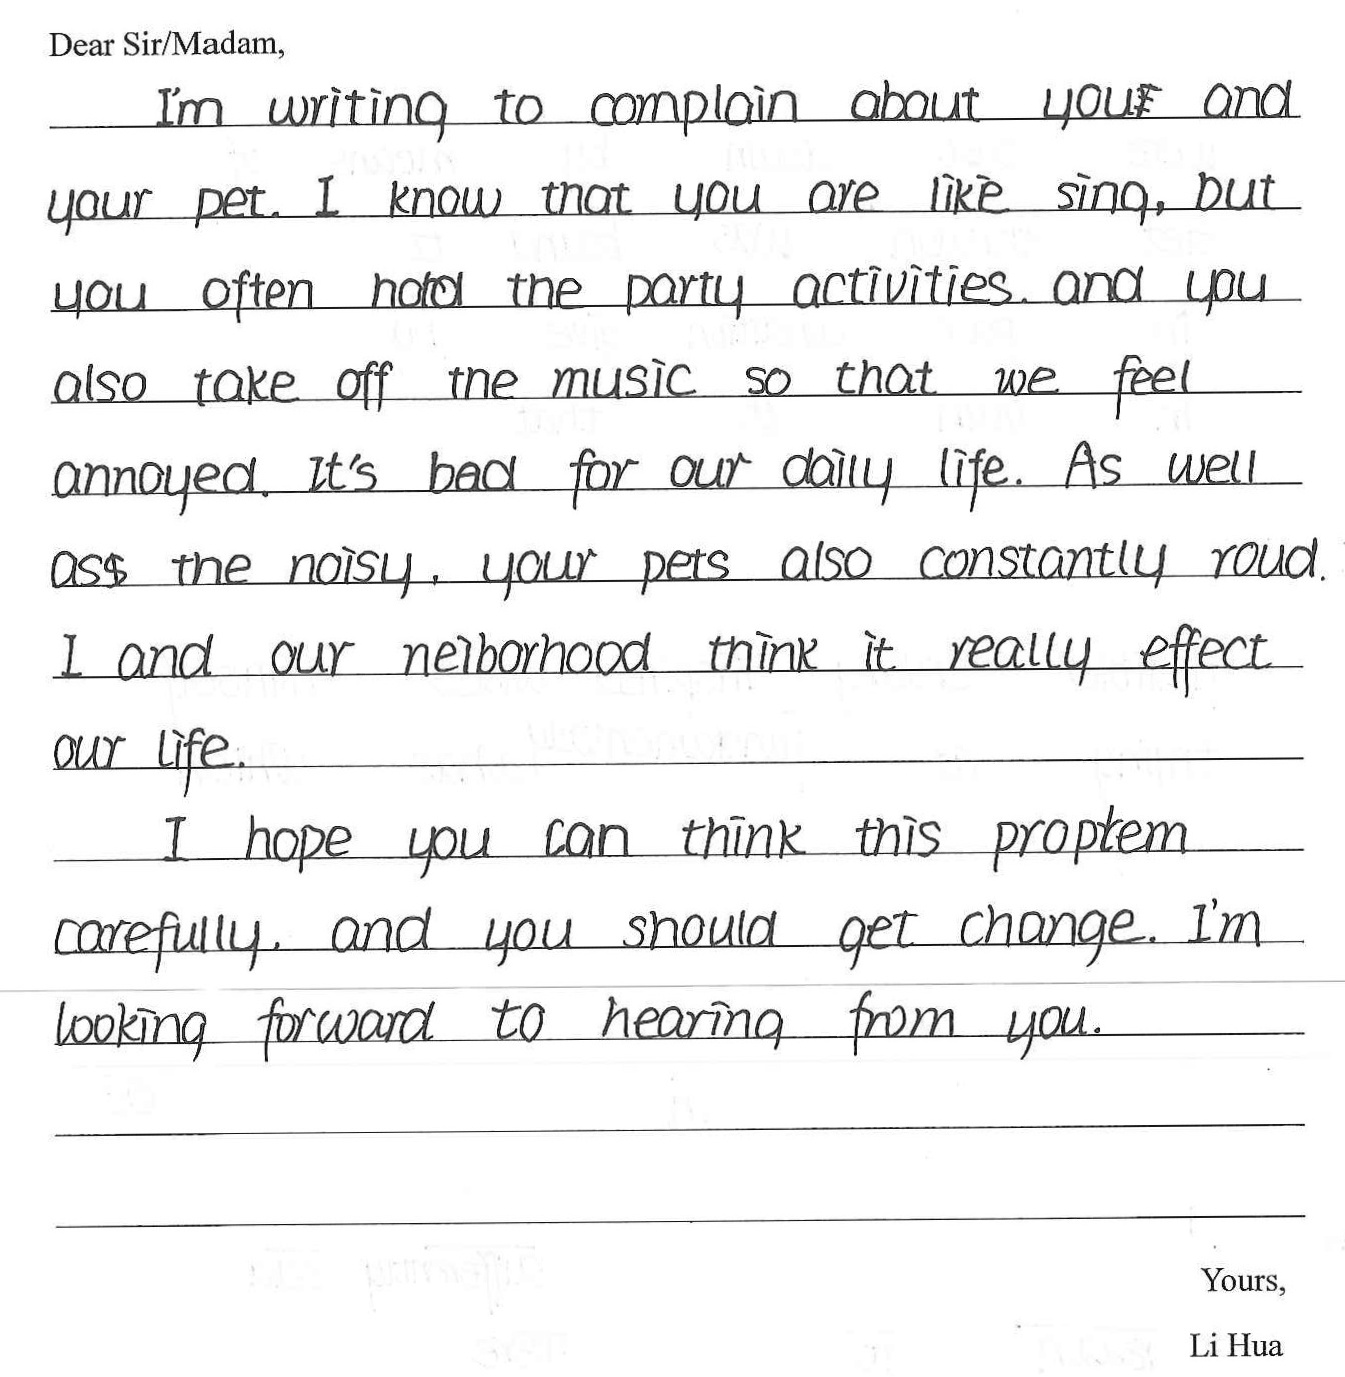 Dear Sir/Madam,
I'm writing to complain about you and
your pet. I know that you are like sing, but
you often hold the party activities. and you
also take off the music so that we feel
annoyed. It's bad for our daily life. As well
as the noisy, your pets also constantly roud.
I and our neiborhood think it really effect
our life.
I hope you can think this proplem
carefully, and you should get change. I'm
looking forward to hearing from you.
Yours,
Li Hua